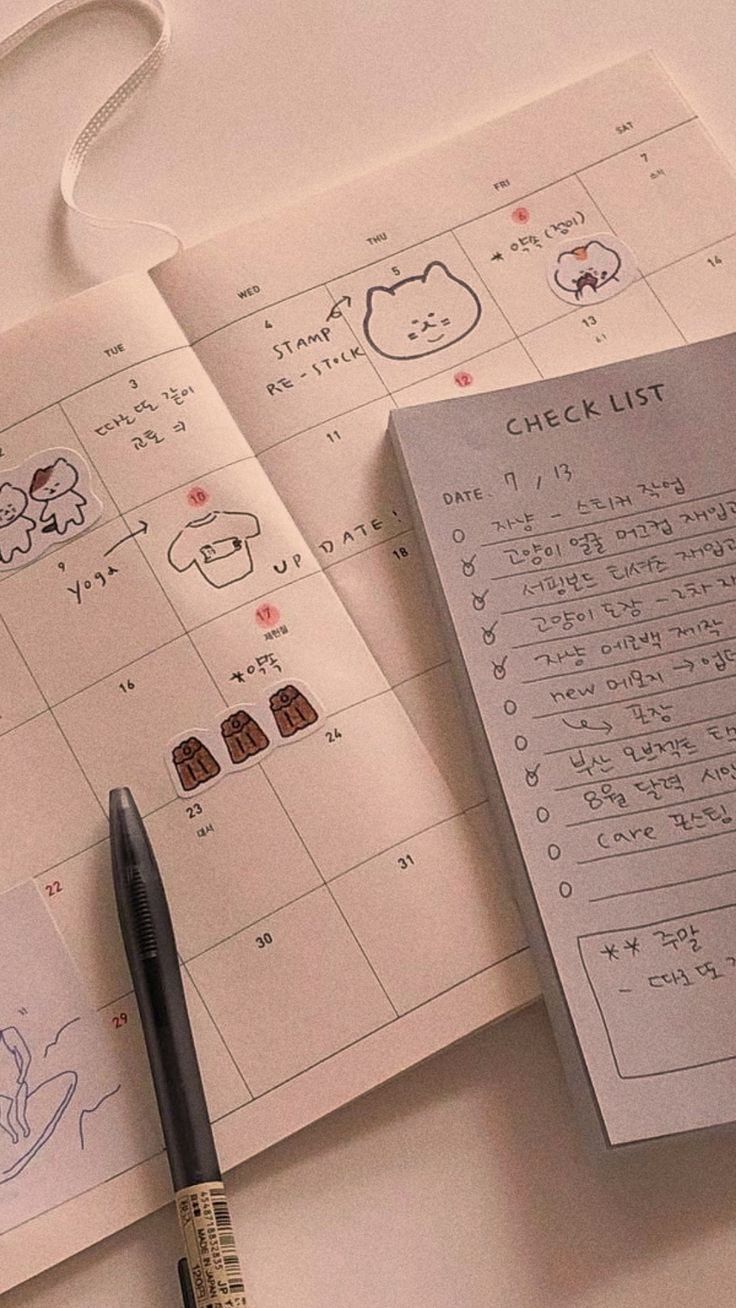 TUE
WED
THU
FRI
SAT
3
따로 또 같이
4
STAMP
RE-STOCK
5
6
* 약속 (정이)
7
소서
9
yoga
10
UP DATE!
11
12
13
14
16
17
제헌절
*약속
18
22
23
대서
24
29
30
31
CHECK LIST
DATE. 7 / 13
자냥 - 스티커 작업
고양이 얼굴 머그컵 재입고
서핑보드 티셔츠 재입고
고양이 도장 - 2차
자냥 에코백 제작
new 메모지 →
↳ 포장
부산 오브젝트
8월 달력 시안
care 포스팅
** 주말
- 따로 또
4548718832835
JP
日本製
MADE IN JAPAN
120円